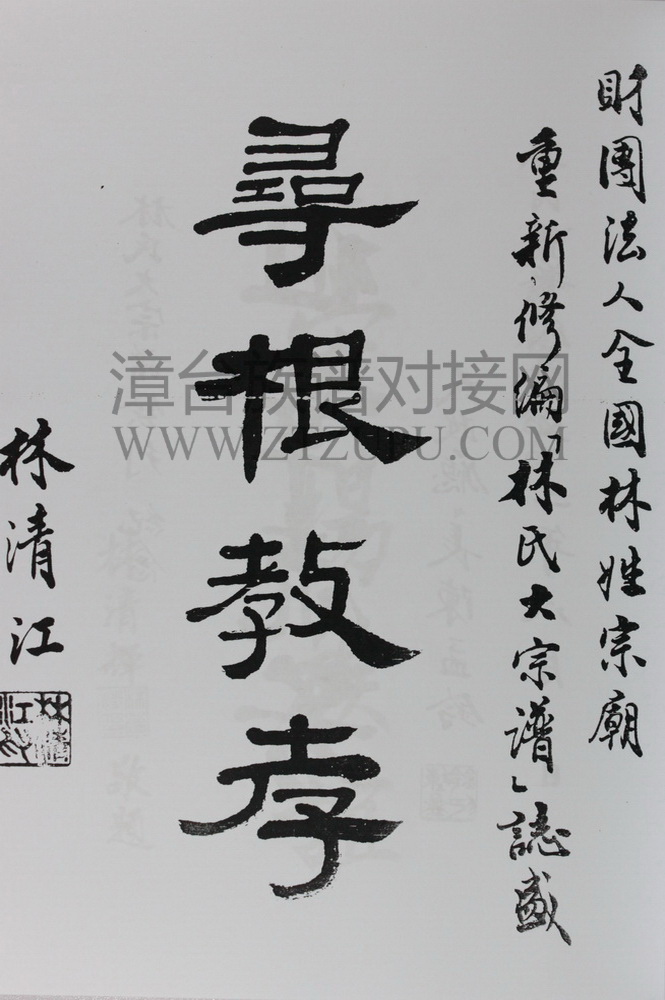 財團法人全國林姓宗廟
重新修編「林氏大宗譜」誌盛
尋根教孝
林清江
漳台族谱对接网
WWW.ZTZUPU.COM